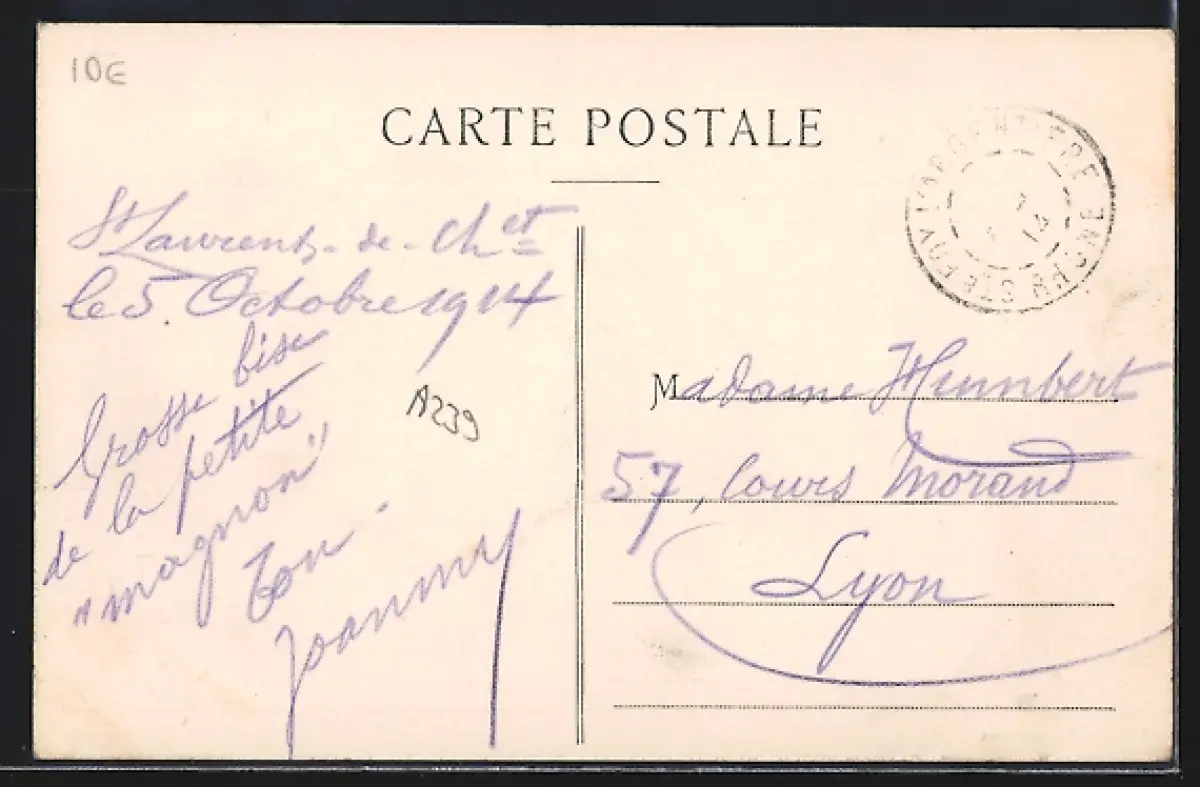 10€
CARTE POSTALE
Ste FOY L'ARGENTIERE RHÔNE
7
14
St Laurent-de-Chet
le 5 Octobre 1914
Grosse bise
de la petite
"magnon"
Ton
Joanny
A239
Madame Humbert
57, Cours Morand
Lyon